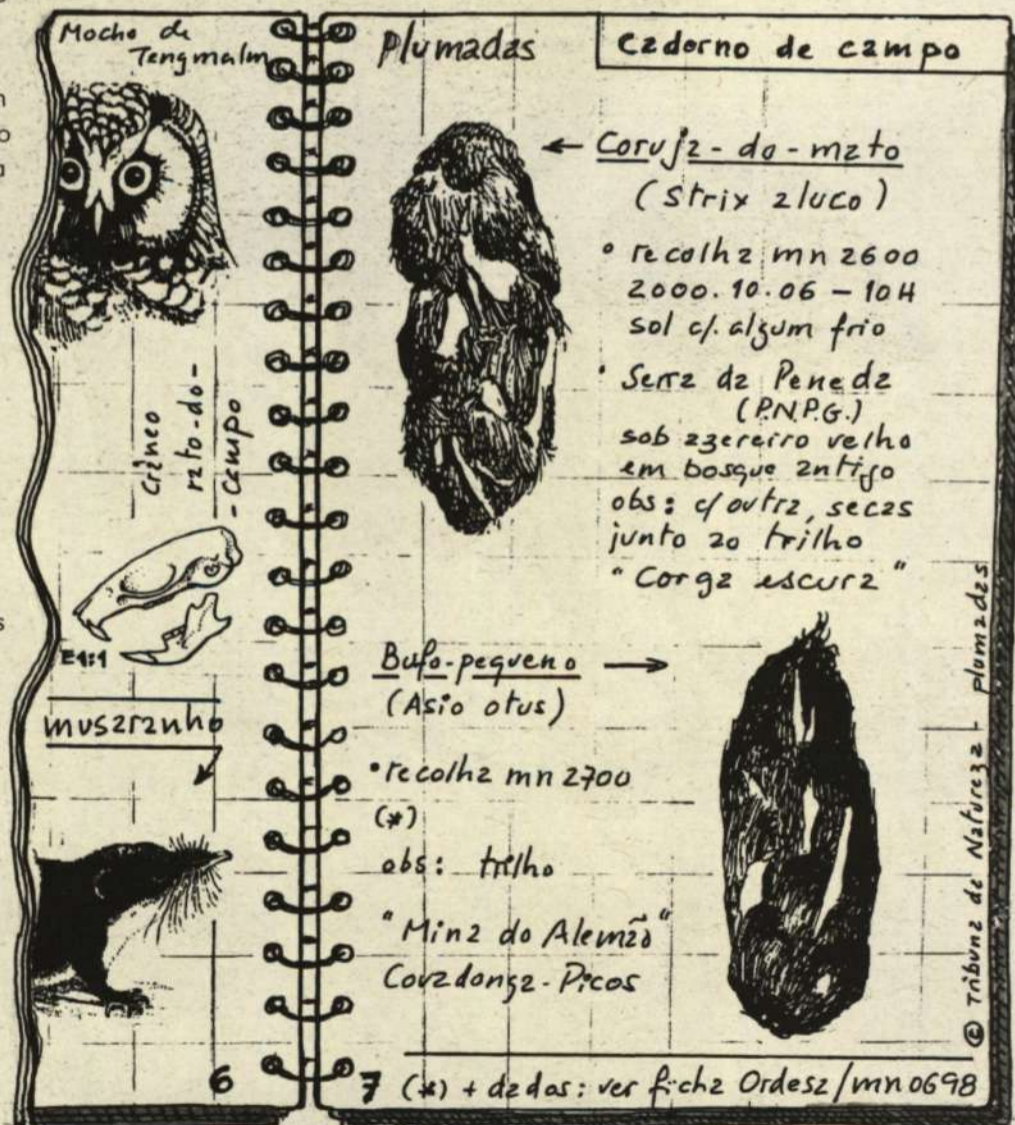 Mocho de
Tengmalm
Crâneo
rato-do-
-campo
E1:1
musaranho
6
Plumadas
caderno de campo
← Coruja-do-mato
(Strix aluco)
• recolha mn 2600
2000.10.06 – 10H
sol c/. algum frio
• Serra da Peneda
(P.N.P.G.)
sob azereiro velho
em bosque antigo
obs: c/ outra, secas
junto ao trilho
"Corga escura"
Bufo-pequeno →
(Asio otus)
• recolha mn 2700
(*)
obs: trilho
"Mina do Alemão"
Covadonga-Picos
7 (*) + dados: ver ficha Ordesa/mn0698
© Tribuna de Natureza - plumadas